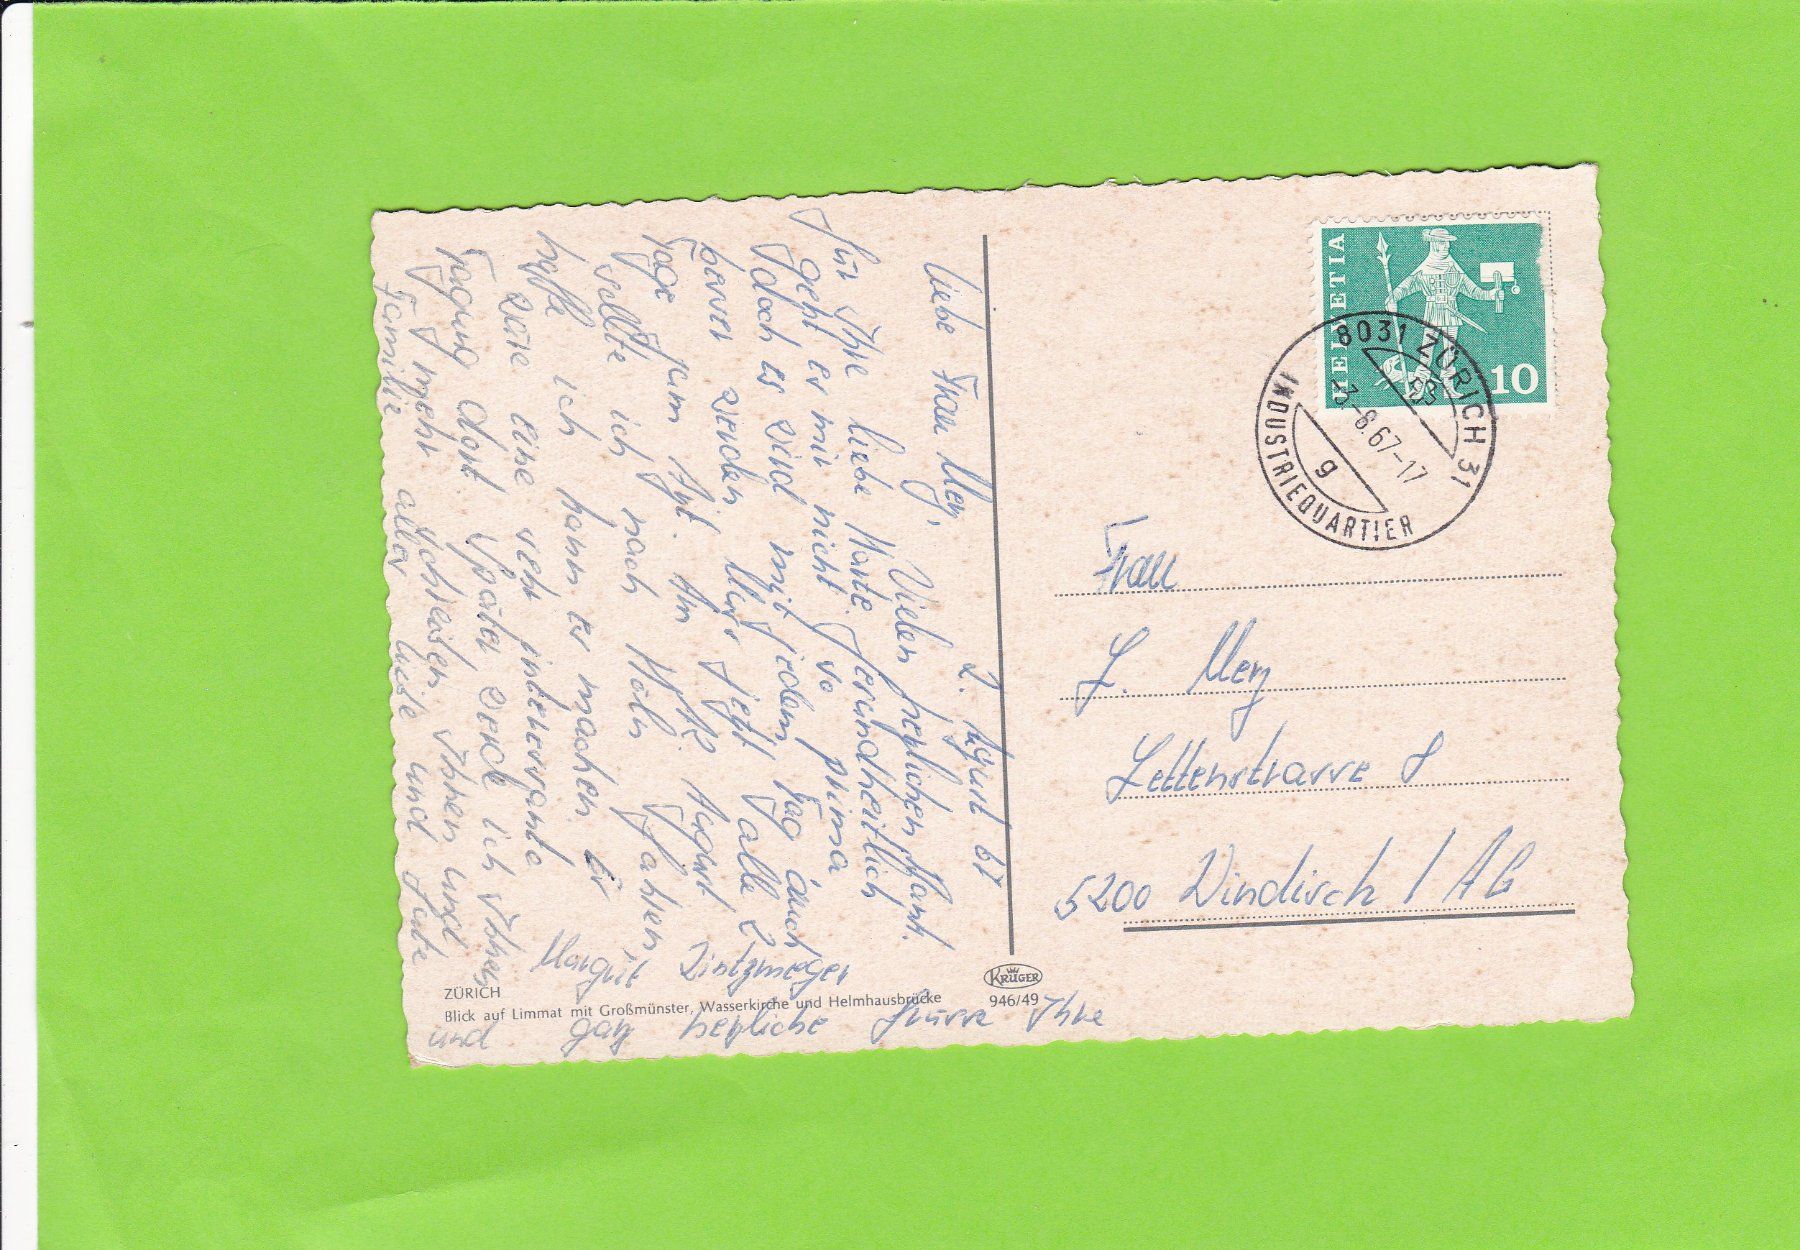 2. August 67
Liebe Frau Merz,
Vielen herzlichen Dank
für Ihre liebe Karte. Gesundheitlich
geht es mir nicht so prima
doch es wird mit jedem Tag auch
besser werden. Muss jetzt alle 2
Tage zum Arzt. Am August
sollte ich nach Köln fahren
hoffe ich kann es machen. Es
wäre eine sehr interessante
Tagung dort. Später werde ich Ihnen
mehr schreiben. Ihnen und
Familie alles Liebe und Gute
und ganz herzliche Grüsse Ihre
Margrit
HELVETIA
10
8031 ZÜRICH 31
-3.-8.67-17
g
INDUSTRIEQUARTIER
Frau
L. Merz
Lettenstrasse 8
5200 Windisch / AG
ZÜRICH
Blick auf Limmat mit Großmünster, Wasserkirche und Helmhausbrücke
KRÜGER
946/49